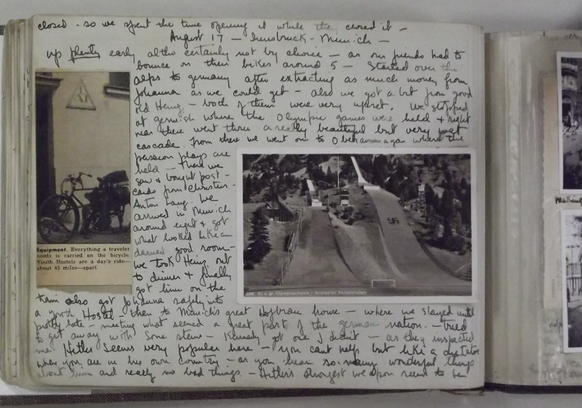 closed - so we spent the time opening it while she closed it -
August 17 - Innsbruck - Munich -
up plenty early, altho certainly not by choice - as our friends had to
bounce on their bikes around 5 - Started over the
alps to germany after extracting as much money from
Johanna as we could get - also we got a bit from good
old Heinz - both of them were very upset. We stopped
at garmish where the Olympic games were held & right
near there went thru a really beautiful but very
cascade. from there we went on to Oberammergau where the
passion plays are
held - there we
saw & bought post -
cards from
Anton Lang. We
arrived in Munich
around eight & got
what looked like a
darned good room -
we took Heinz out
to dinner & finally
got him on the
train also got Johanna safely into
a youth Hostel then to Munich's great Hofbrau house - where we stayed until
pretty late - meeting what seemed a great part of the german nation. - tried
to get away with some steins - got one & didn't - as they inspected
me! Hitler seems very popular here - & you can't help but like a dictator
when you are in his own country - as you hear so many wonderful things
about him and really no bad things - Hitler's strongest weapon seem to be
Equipment. Everything a traveler
needs is carried on the bicycle.
Youth Hostels are a day's ride—
about 45 miles—apart.